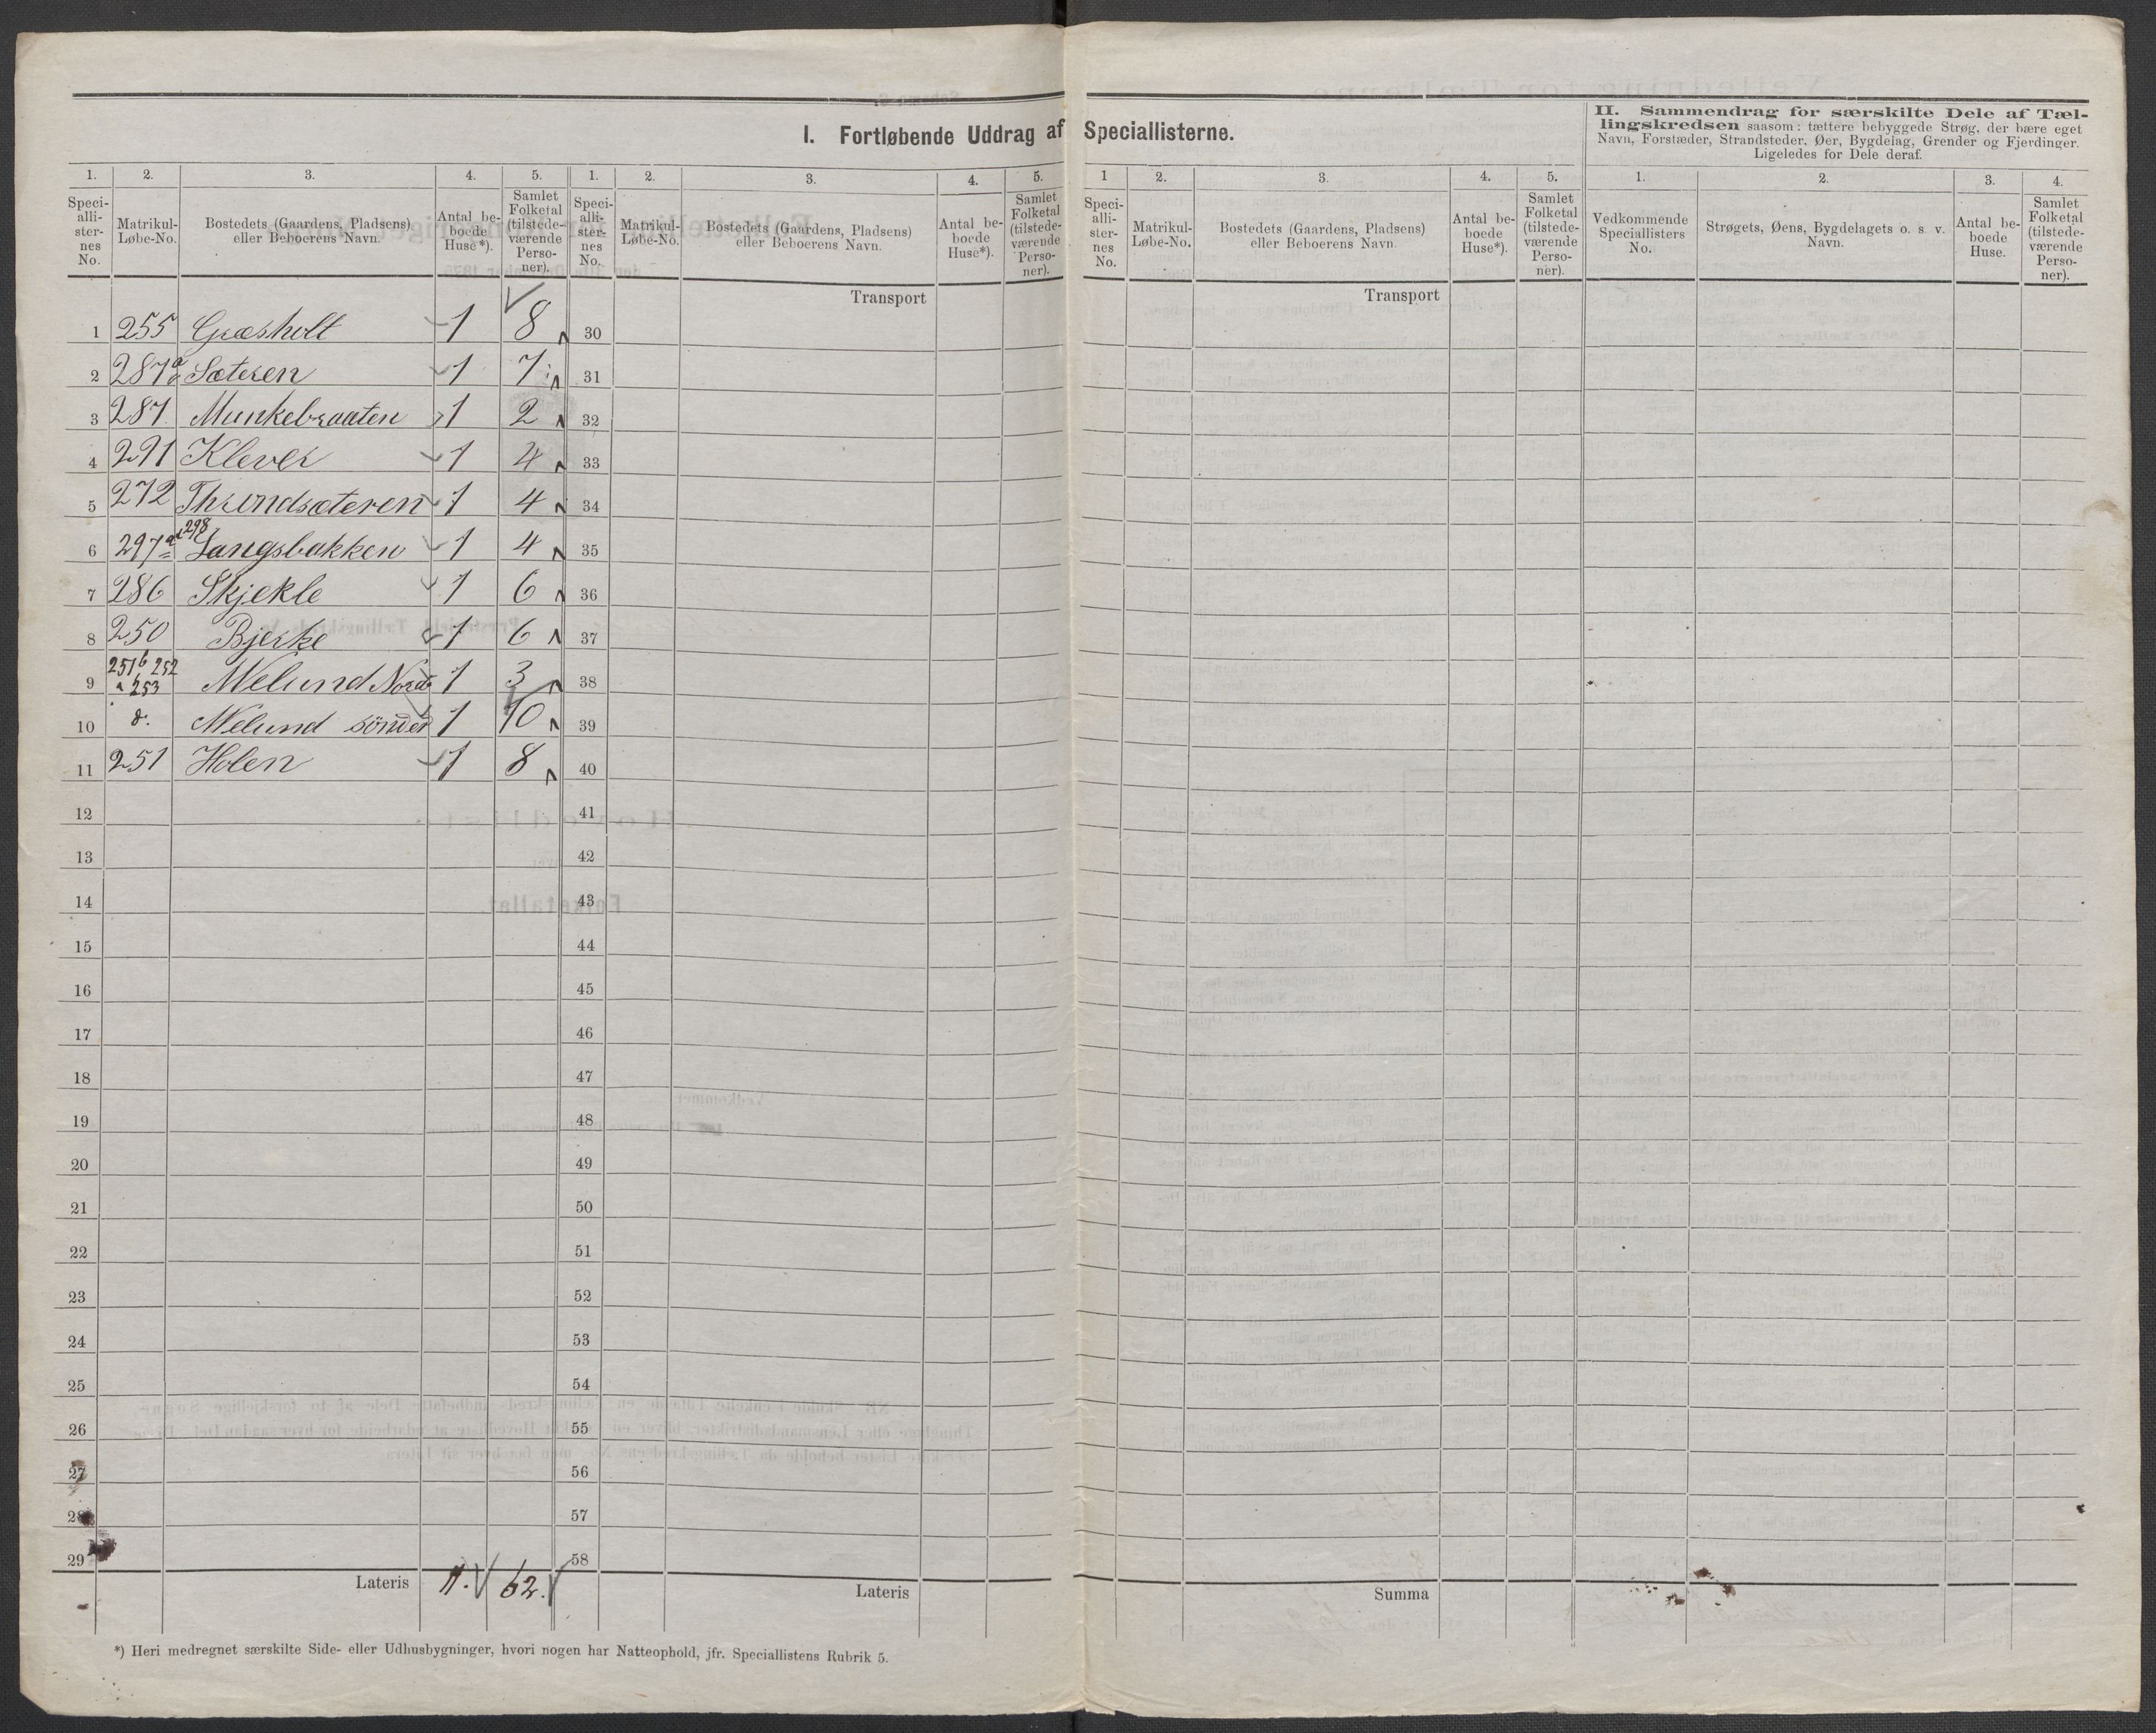 I. Fortløbende Uddrag af Speciallisterne.
II. Sammendrag for særskilte Dele af Tæl-
lingskredsen saasom: tættere bebyggede Strøg, der bære eget
Navn, Forstæder, Strandsteder, Øer, Bygdelag, Grender og Fjerdinger.
Ligeledes for Dele deraf.
1. 2. 3. 4. 5. 1. 2. 3. 4. 5. 1 2. 3. 4. 5. 1. 2. 3. 4.
Speci-
alli-
ster-
nes
No.
Matrikul-
Løbe-No.
Bostedets (Gaardens, Pladsens)
eller Beboerens Navn.
Antal be-
boede
Huse*).
Samlet
Folketal
(tilstede-
værende
Perso-
ner).
Speci-
alli-
ster-
nes
No.
Matrikul-
Løbe-No.
Bostedets (Gaardens, Pladsens)
eller Beboerens Navn.
Antal be-
boede
Huse*).
Samlet
Folketal
(tilstede-
værende
Perso-
ner).
Speci-
alli-
ster-
nes
No.
Matrikul-
Løbe-No.
Bostedets (Gaardens, Pladsens)
eller Beboerens Navn.
Antal be-
boede
Huse*).
Samlet
Folketal
(tilstede-
værende
Perso-
ner).
Vedkommende
Speciallisters
No.
Strøgets, Øens, Bygdelagets o. s. v.
Navn.
Antal be-
boede
Huse.
Samlet
Folketal
(tilstede-
værende
Perso-
ner).
Transport Transport
1 255 Græsholt 1 8 30
2 287a Sæteren 1 7 31
3 287 Munkebraaten 1 2 32
4 291 Klever 1 4 33
5 272 Throndsæteren 1 4 34
6 297a 298 Langsbakken 1 4 35
7 286 Skjekle 1 6 36
8 250 Bjerke 1 6 37
9 251b 252 253 Melund Nord 1 3 38
10 d. Melund sönder 1 10 39
11 251 Holen 1 8 40
12 41
13 42
14 43
15 44
16 45
17 46
18 47
19 48
20 49
21 50
22 51
23 52
24 53
25 54
26 55
27 56
28 57
29 58
Lateris 11. 62. Lateris Summa
*) Heri medregnet særskilte Side- eller Udhusbygninger, hvori nogen har Natteophold, jfr. Speciallistens Rubrik 5.